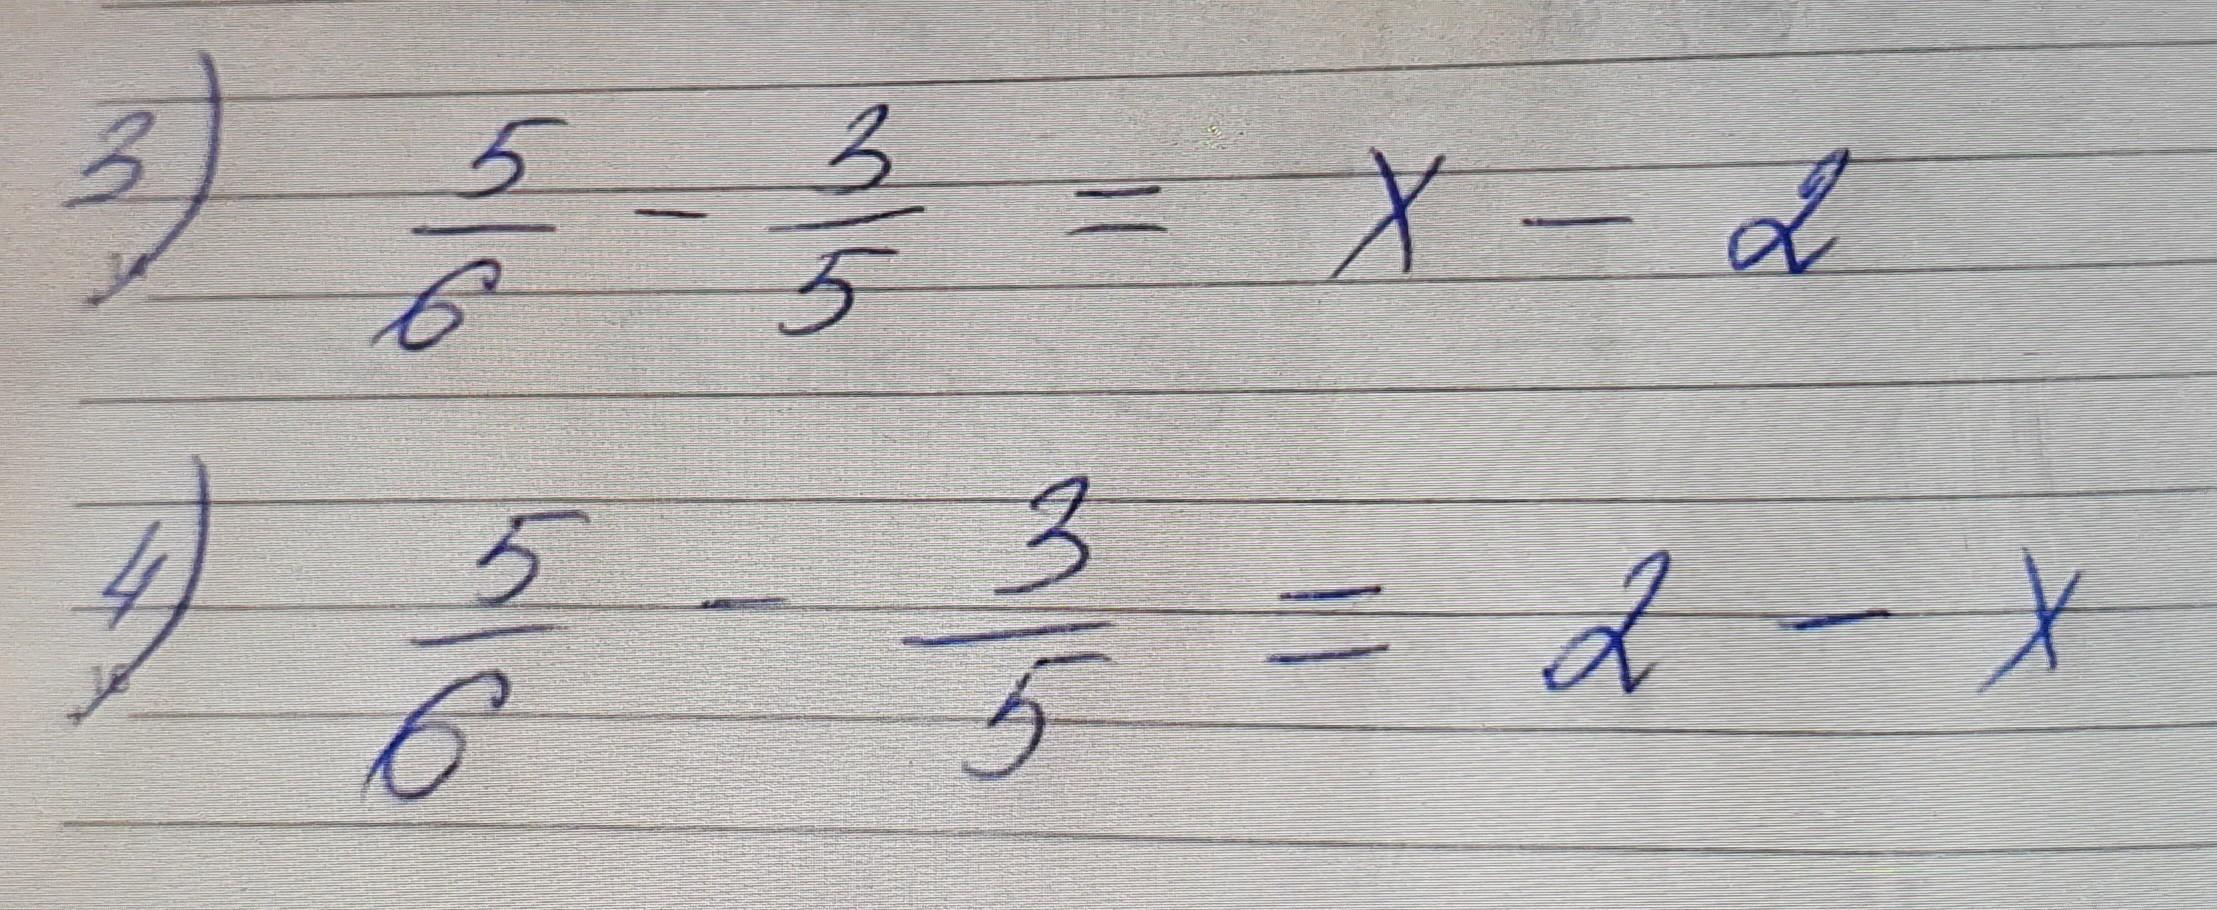 3) 5/6 - 3/5 = x - 2
4) 5/6 - 3/5 = 2 - x